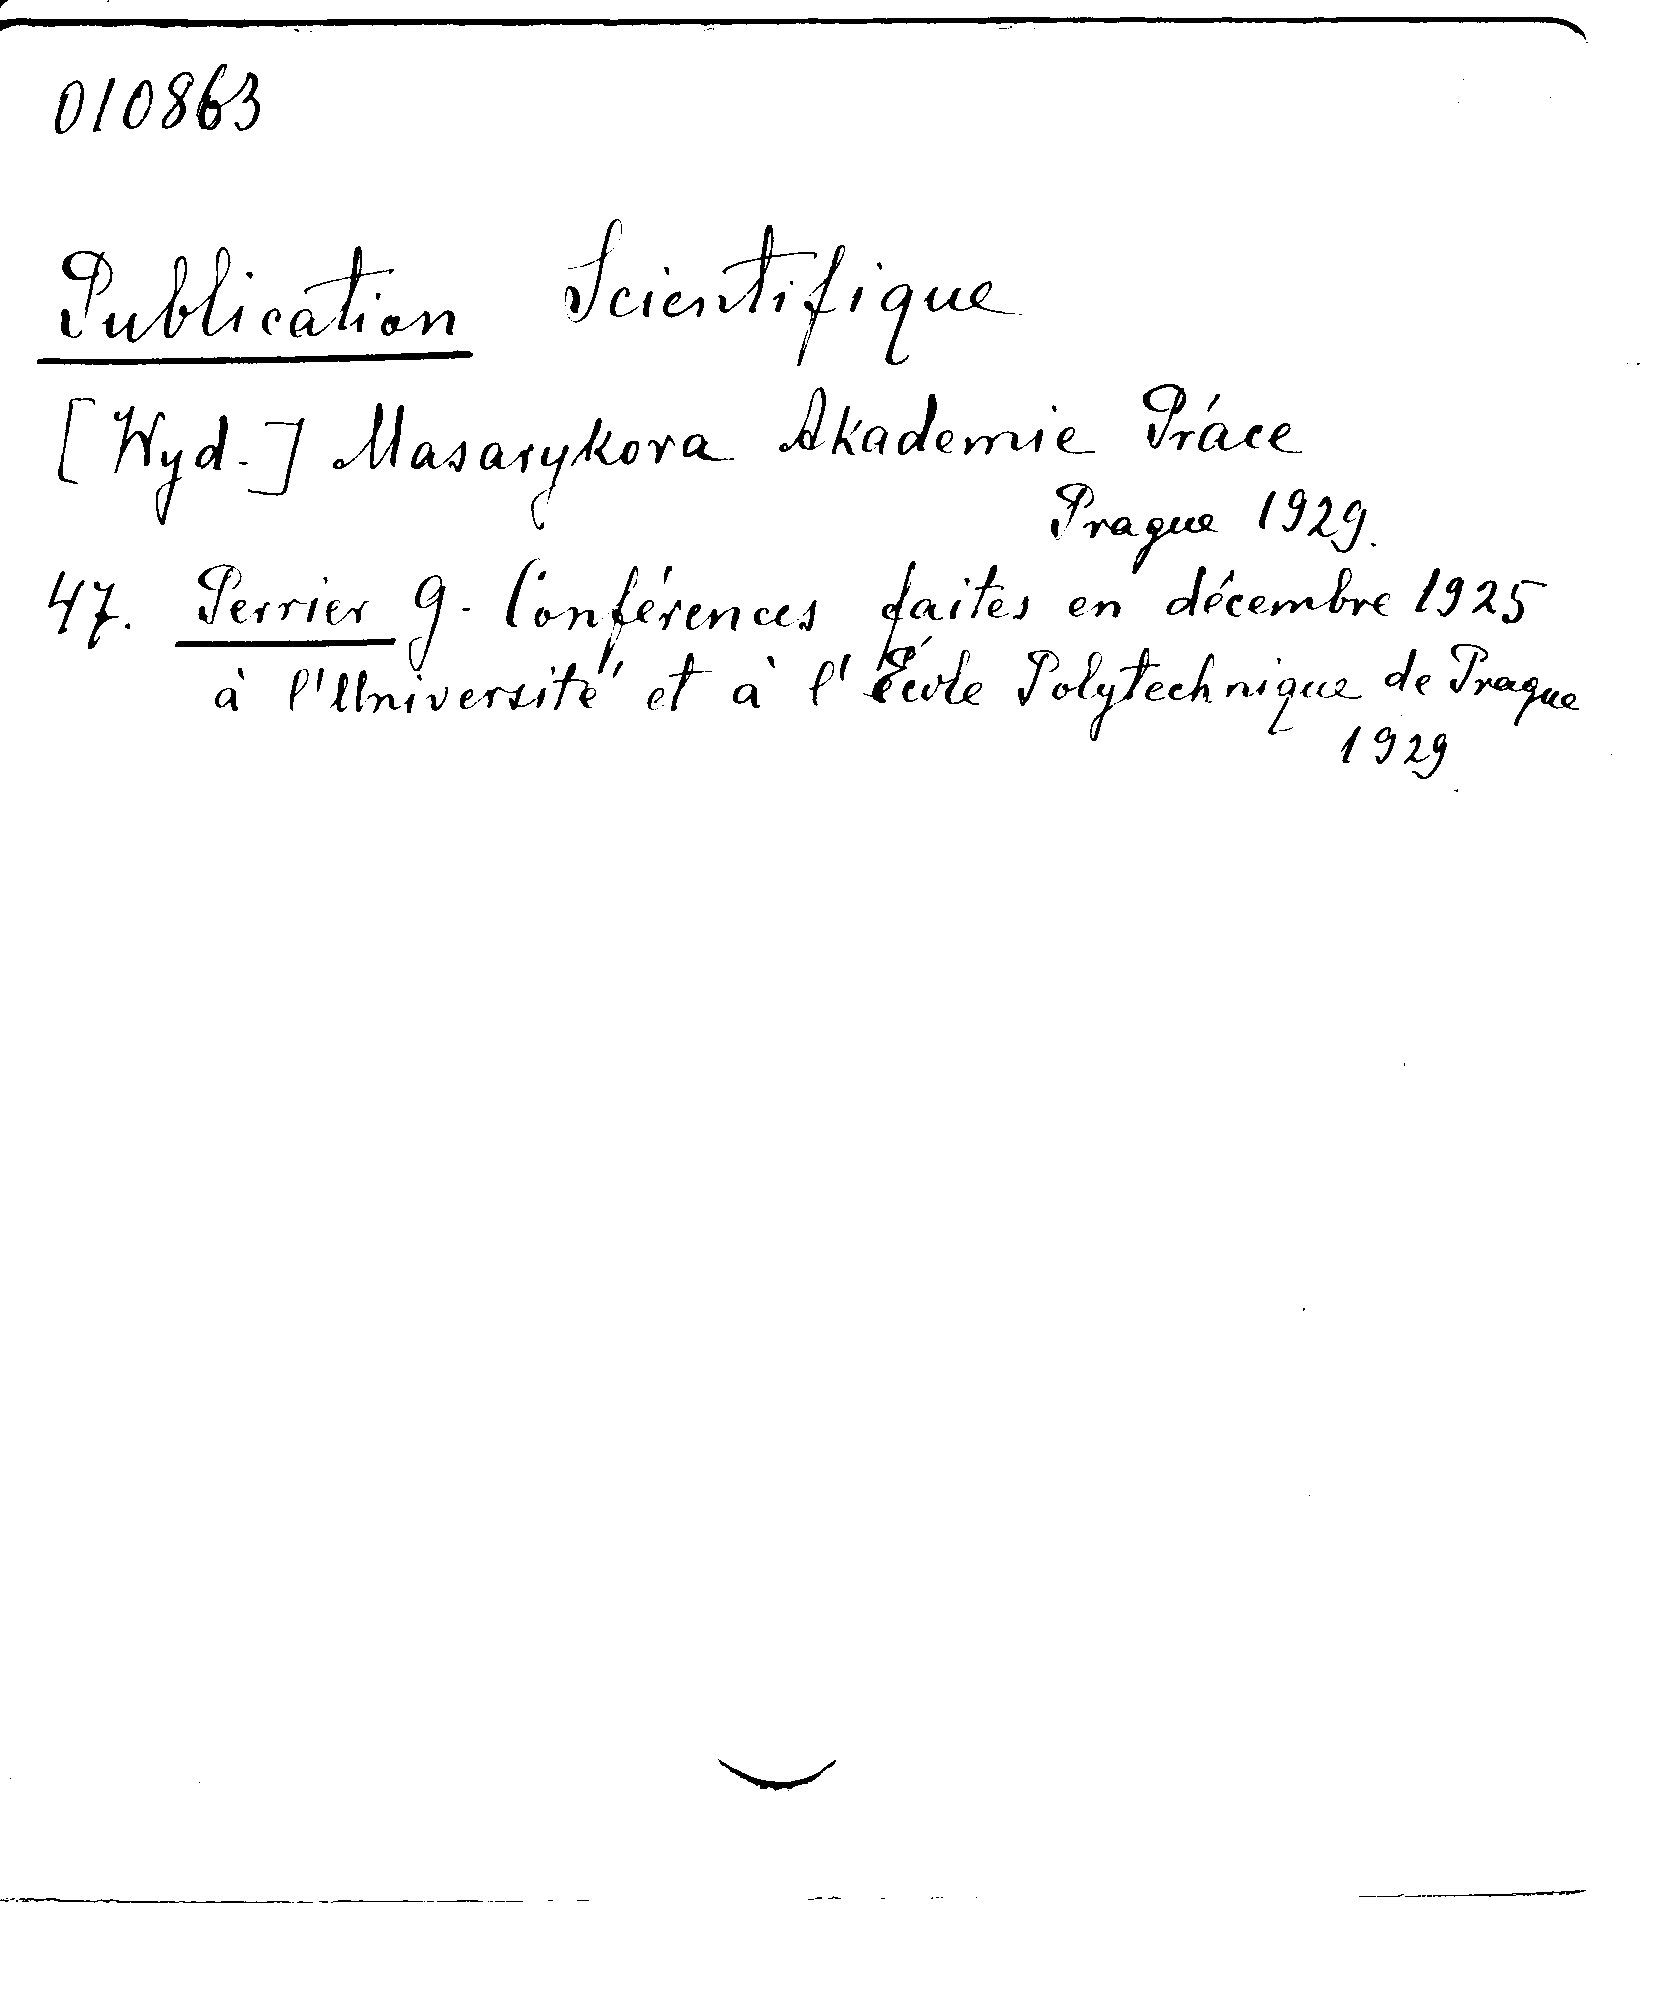 010863
Publication Scientifique
[Wyd.] Masarykova Akademie Práce
Prague 1929.
47. Perrier G. Conférences faites en décembre 1925
à l'Université et à l'École Polytechnique de Prague
1929